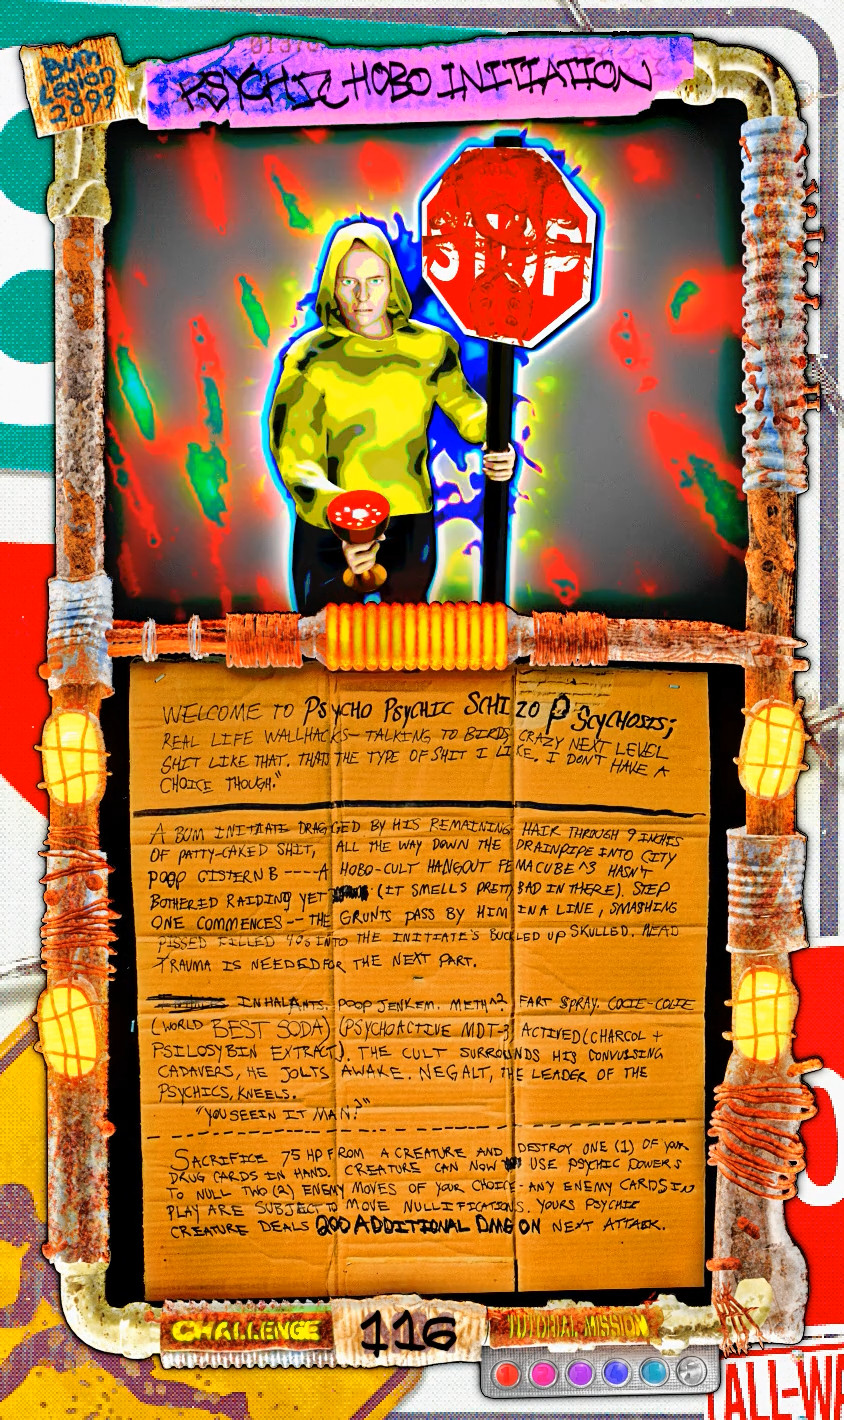 Bum
Legion
2099
PSYCHIC HOBO INITIATION
STOP
WELCOME TO PSYCHO PSYCHIC SCHIZO PSCYCHOSIS;
REAL LIFE WALLHACKS- TALKING TO BIRDS CRAZY NEXT LEVEL
SHIT LIKE THAT. THATS THE TYPE OF SHIT I LIKE. I DON'T HAVE A
CHOICE THOUGH."
A BUM INITIATE DRAGGED BY HIS REMAINING HAIR THROUGH 9 INCHES
OF PATTY-CAKED SHIT, ALL THE WAY DOWN THE DRAINPIPE INTO CITY
POOP CISTERN B ----A HOBO-CULT HANGOUT FEMACUBE^3 HASN'T
BOTHERED RAIDING YET (IT SMELLS PRETTY BAD IN THERE). STEP
ONE COMMENCES -- THE GRUNTS PASS BY HIM IN A LINE, SMASHING
PISSED FILLED 40s INTO THE INITIATE'S BUCKLED UP SKULLED. HEAD
TRAUMA IS NEEDED FOR THE NEXT PART.
INHALANTS. POOP JENKEM. METH^2. FART SPRAY. COCIE-COLIE
(WORLD BEST SODA) (PSYCHOACTIVE MDT-3) ACTIVED (CHARCOL +
PSILOSYBIN EXTRACT). THE CULT SURROUNDS HIS CONVULSING
CADAVERS, HE JOLTS AWAKE. NEGALT, THE LEADER OF THE
PSYCHICS, KNEELS.
"YOU SEEIN IT MAN?"
SACRIFICE 75 HP FROM A CREATURE AND DESTROY ONE (1) OF YOUR
DRUG CARDS IN HAND. CREATURE CAN NOW USE PSYCHIC POWERS
TO NULL TWO (2) ENEMY MOVES OF YOUR CHOICE - ANY ENEMY CARDS IN
PLAY ARE SUBJECT TO MOVE NULLIFICATIONS. YOURS PSYCHIC
CREATURE DEALS 200 ADDITIONAL DMG ON NEXT ATTACK.
CHALLENGE 116 TUTORIAL MISSION
ALL-WA